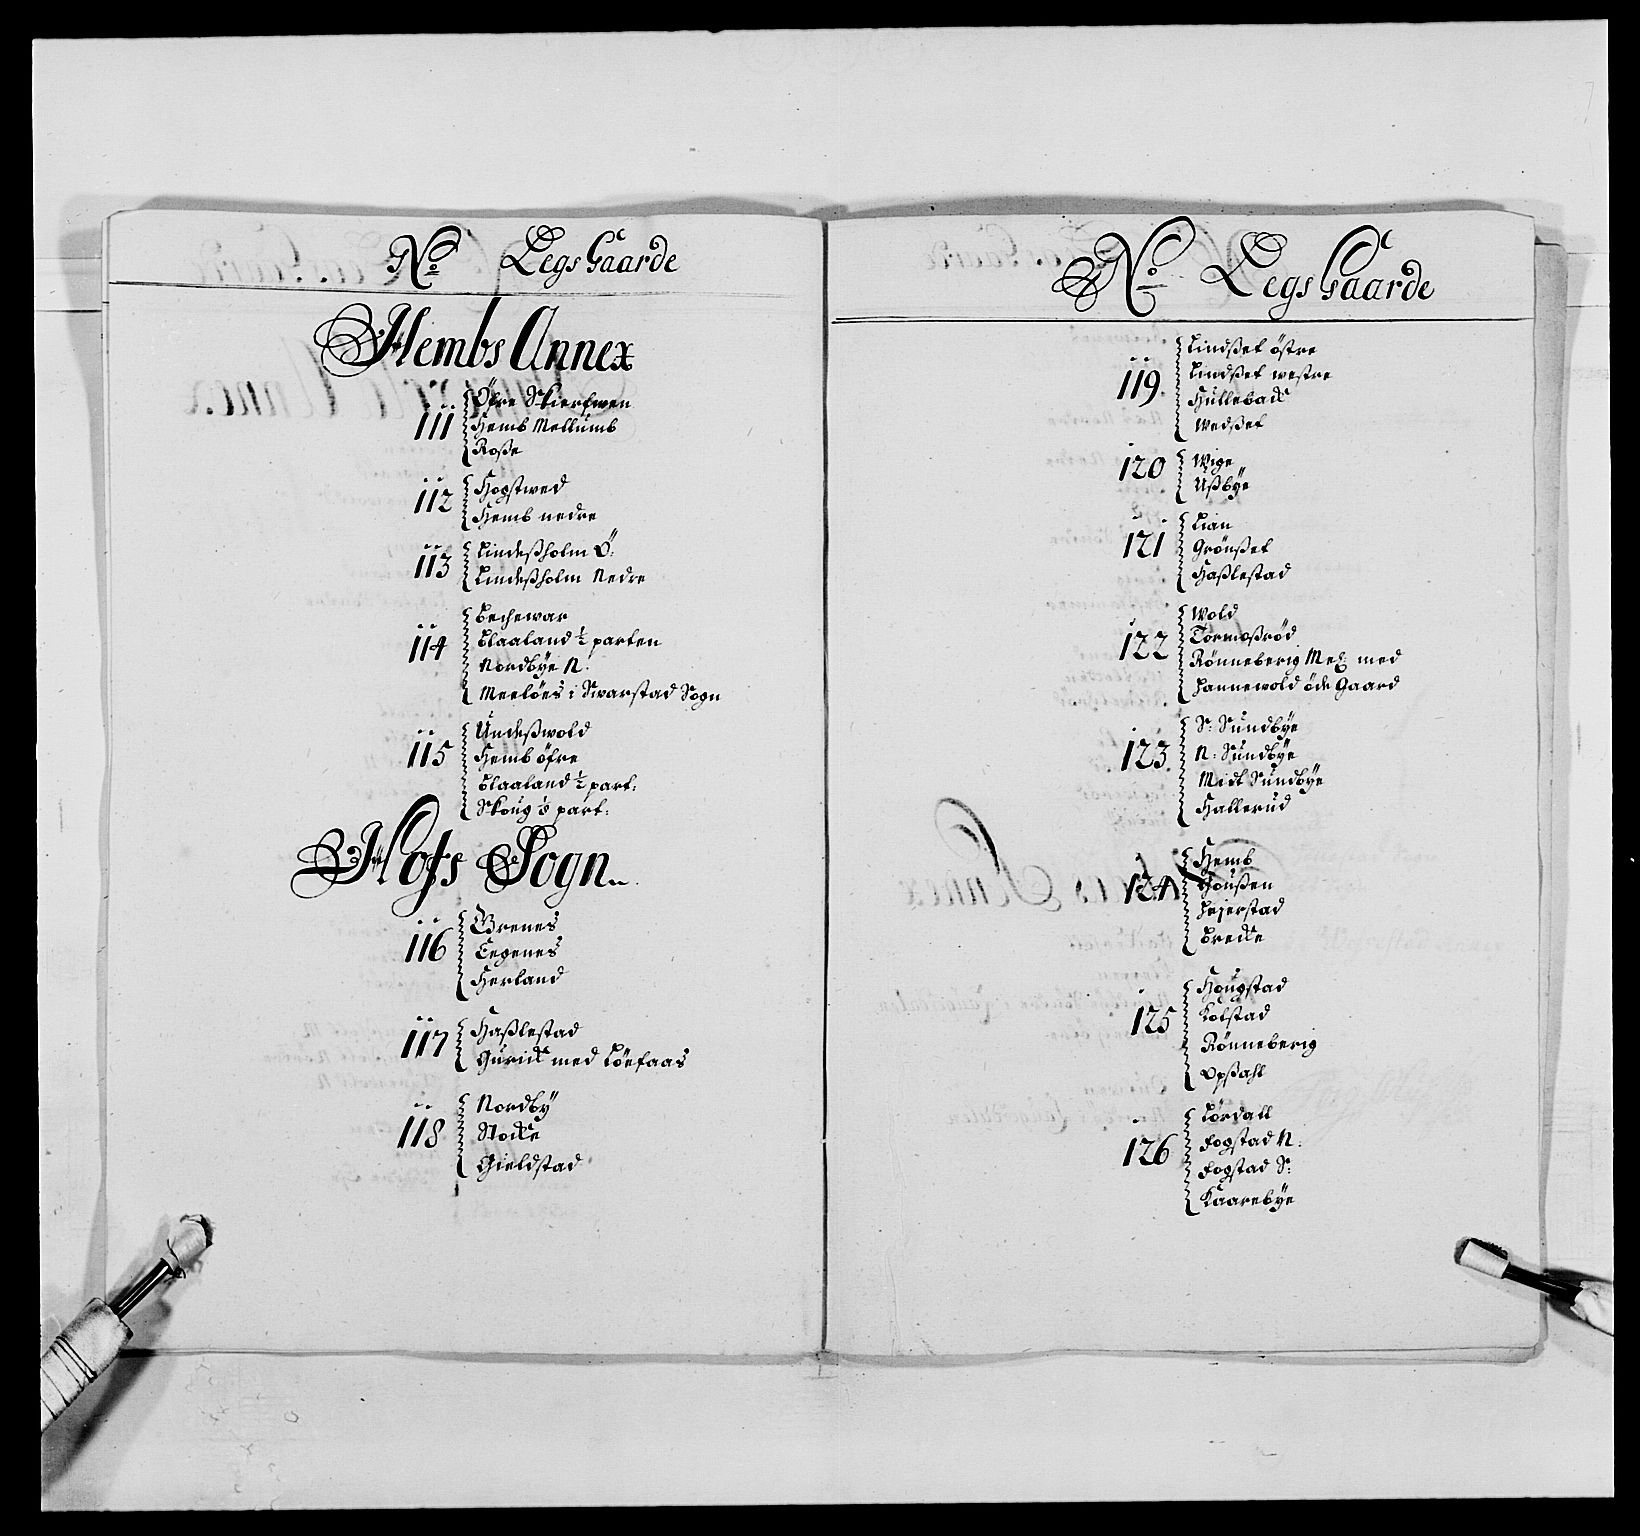 No Legs Gaarde
Hembs Annex
111 Öfre Skierfwen
Hemb Mellumb
Roße
112 Hogstwed
Hemb nedre
113 Lindeßholm Ö:
Lindeßholm Nedre
114 Bechewar
Blaaland ½ parten
Nordbÿe N:
Meelöes i Swarstad Sogn
115 Undeßwold
Hemb öfre
Blaaland ½ part:
Skoug ⅛ part:
Hofs Sogn
116 Grenes
Tegenes
Herland
117 Haßlestad
Gurick med Löefaas
118 Nordbÿ
Stocke
Gieldstad
No Legs Gaarde
119. Lindßet östre
Lindßet westre
Hulleback
Wedßet
120 Wige
Ußbÿe
121 Lian
Grönßet
Haßlestad
122 Wold
Tormoßröd
Rönneberig Mel: med
Hannewold öde Gaard
123. S: Sundbÿe
N: Sundbÿe
Midt Sundbÿe
Hallerud
124 Hemb
Goußen
Heierstad
Brecke
125 Hougstad
Kolstad
Rönneberig
Opßahl
126 Lördall
Fogstad N:
Fogstad S:
Kaarebÿe